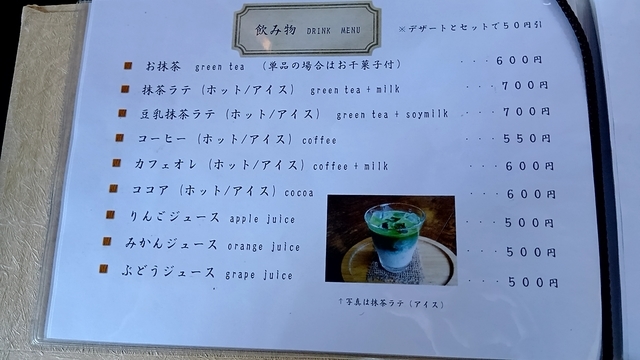 飲み物 DRINK MENU ※デザートとセットで50円引
お抹茶 green tea (単品の場合はお干菓子付) ・・・600円
抹茶ラテ (ホット/アイス) green tea + milk ・・・700円
豆乳抹茶ラテ (ホット/アイス) green tea + soymilk ・・・700円
コーヒー (ホット/アイス) coffee ・・・550円
カフェオレ (ホット/アイス) coffee + milk ・・・600円
ココア (ホット/アイス) cocoa ・・・600円
りんごジュース apple juice ・・・500円
みかんジュース orange juice ・・・500円
ぶどうジュース grape juice ・・・500円
↑写真は抹茶ラテ (アイス)